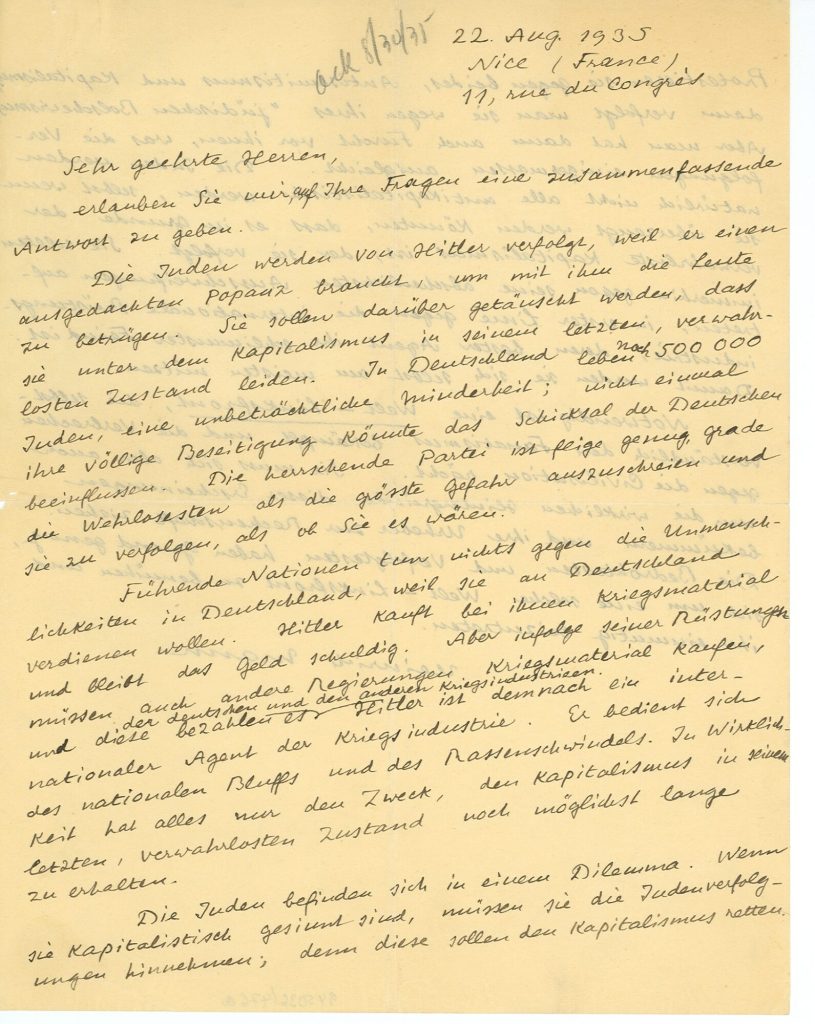 ack 8/30/35
22. Aug. 1935
Nice (France)
11, rue du Congrés
Sehr geehrte Herren,
erlauben Sie mir, auf Ihre Fragen eine zusammenfassende
Antwort zu geben.
Die Juden werden von Hitler verfolgt, weil er einen
ausgedachten Popanz braucht, um mit ihm die Leute
zu betrügen. Sie sollen darüber getäuscht werden, dass
sie unter dem Kapitalismus in seinem letzten, verwahr-
losten Zustand leiden. In Deutschland leben noch 500 000
Juden, eine unbeträchtliche Minderheit; nicht einmal
ihre völlige Beseitigung könnte das Schicksal der Deutschen
beeinflussen. Die herrschende Partei ist feige genug, grade
die Wehrlosesten als die grösste Gefahr auszuschreien und
sie zu verfolgen, als ob Sie es wären.
Führende Nationen tun nichts gegen die Unmensch-
lichkeiten in Deutschland, weil sie an Deutschland
verdienen wollen. Hitler kauft bei ihnen Kriegsmaterial
und bleibt das Geld schuldig. Aber infolge seiner Rüstungen
müssen auch andere Regierungen Kriegsmaterial kaufen,
und diese bezahlen es der deutschen und den anderen Kriegsindustrieen. Hitler ist demnach ein inter-
nationaler Agent der Kriegsindustrie. Er bedient sich
des nationalen Bluffs und des Rassenschwindels. In Wirklich-
keit hat alles nur den Zweck, den Kapitalismus in seinem
letzten, verwahrlosten Zustand noch möglichst lange
zu erhalten.
Die Juden befinden sich in einem Dilemma. Wenn
sie kapitalistisch gesinnt sind, müssen sie die Judenverfolg-
ungen hinnehmen; denn diese sollen den Kapitalismus retten.